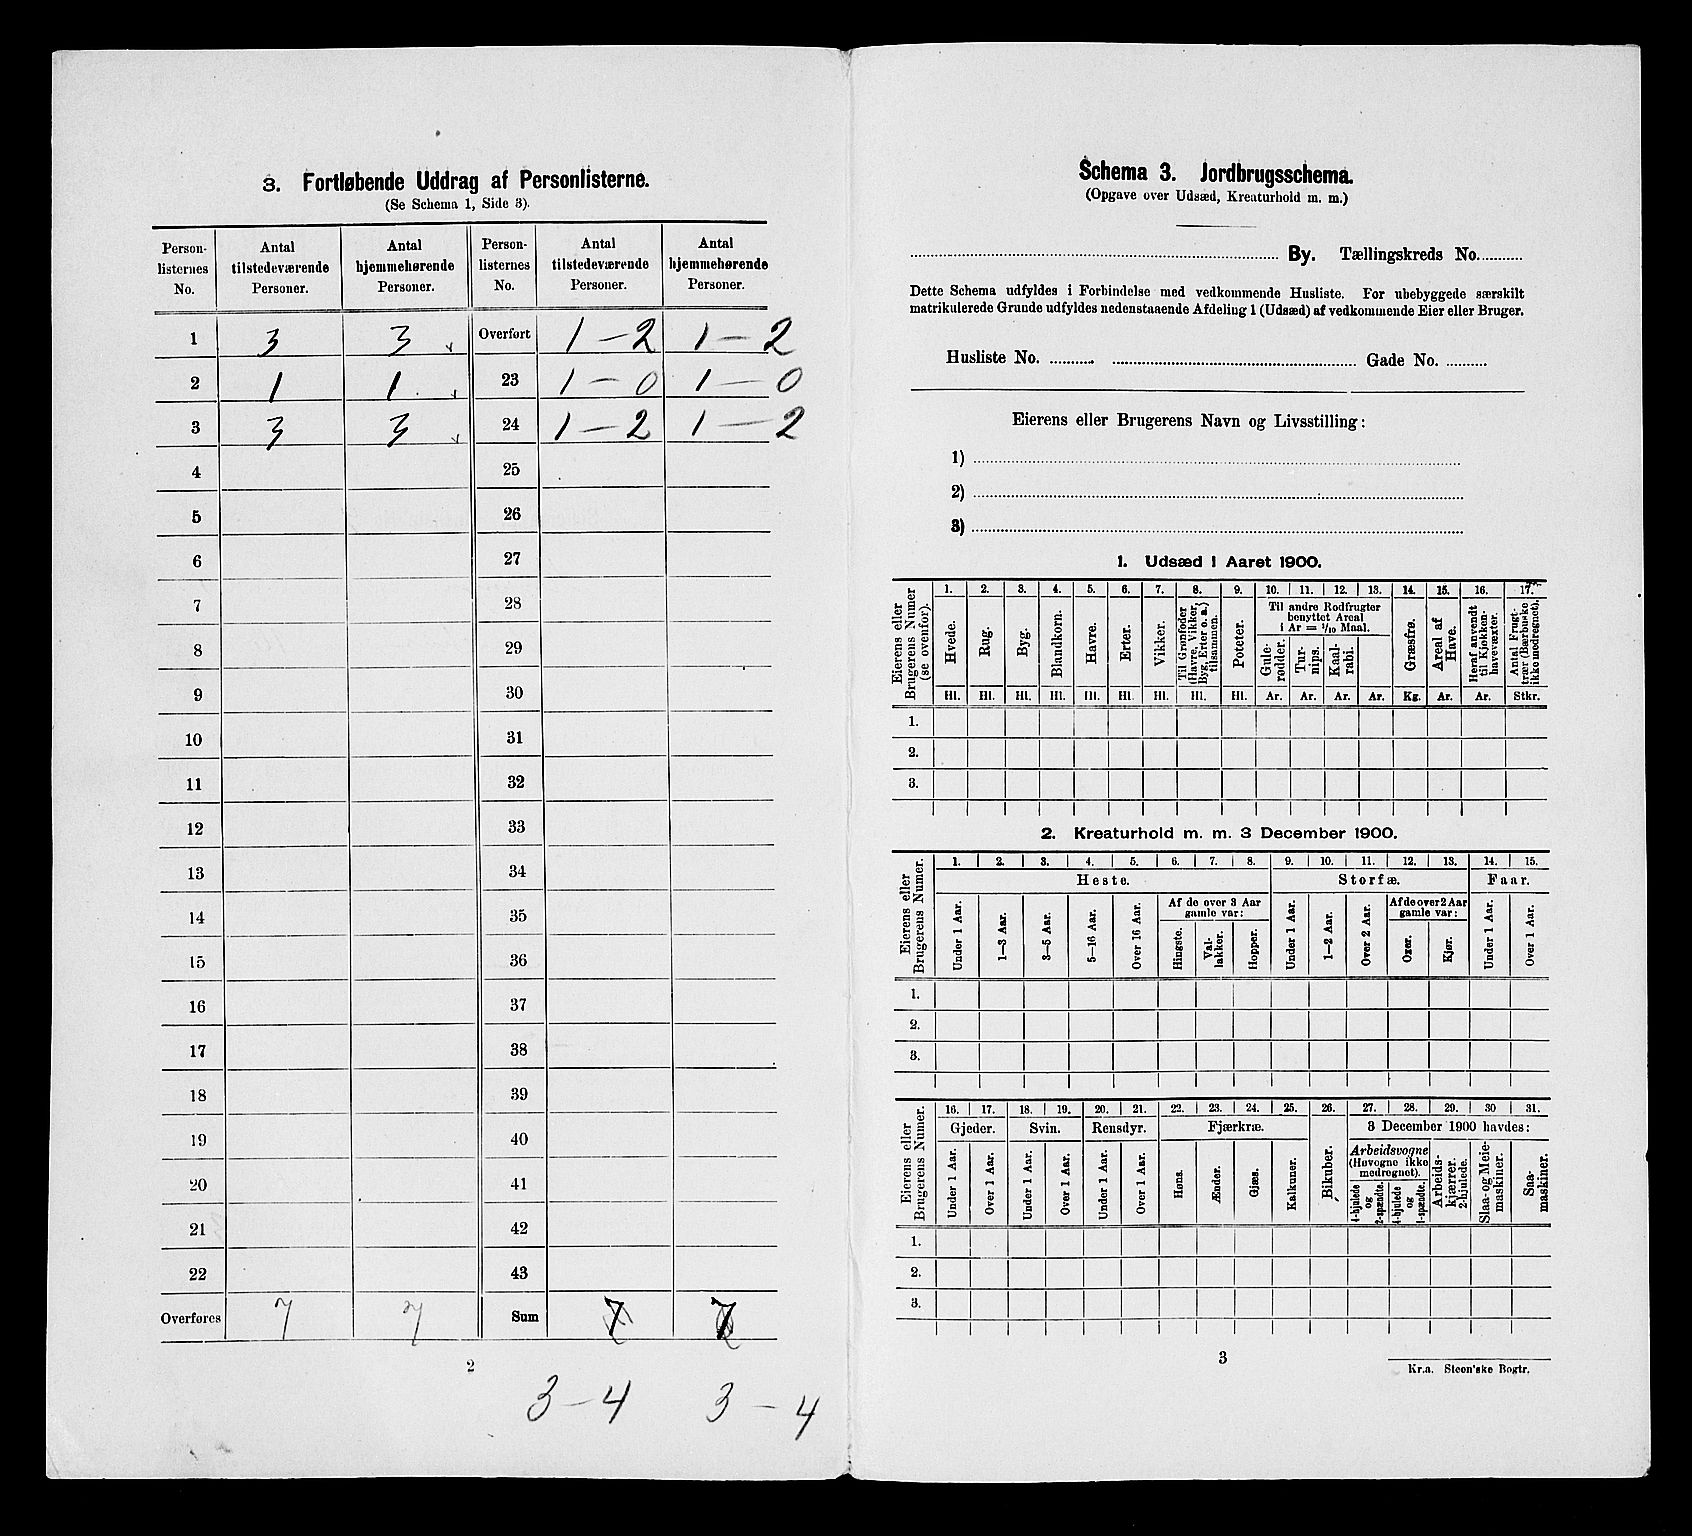 3. Fortløbende Uddrag af Personlisterne.
(Se Schema 1, Side 3).
Person-listernes No. | Antal tilstedeværende Personer. | Antal hjemmehørende Personer. | Person-listernes No. | Antal tilstedeværende Personer. | Antal hjemmehørende Personer.
1 | 3 | 3 | Overført | 1 – 2 | 1 – 2
2 | 1 | 1 | 23 | 1 – 0 | 1 – 0
3 | 3 | 3 | 24 | 1 – 2 | 1 – 2
4 25
5 26
6 27
7 28
8 29
9 30
10 31
11 32
12 33
13 34
14 35
15 36
16 37
17 38
18 39
19 40
20 41
21 42
22 43
Overføres | 7 | 7 | Sum | 7 | 7
2
3 – 4 3 – 4
Schema 3. Jordbrugsschema.
(Opgave over Udsæd, Kreaturhold m. m.)
By. Tællingskreds No.
Dette Schema udfyldes i Forbindelse med vedkommende Husliste. For ubebyggede særskilt
matrikulerede Grunde udfyldes nedenstaaende Afdeling 1 (Udsæd) af vedkommende Eier eller Bruger.
Husliste No. Gade No.
Eierens eller Brugerens Navn og Livsstilling:
1)
2)
3)
1. Udsæd i Aaret 1900.
Eierens eller Brugerens Numer (se ovenfor).
1. 2. 3. 4. 5. 6. 7. 8. 9. 10. 11. 12. 13. 14. 15. 16. 17.
Hvede. Rug. Byg. Blandkorn. Havre. Erter. Vikker. Til Grønfoder (Havre, Vikker, Byg, Erter o. a.) tilsammen. Poteter.
Til andre Rodfrugter benyttet Areal i Ar = 1/10 Maal.
Gule-rødder. Tur-nips. Kaal-rabi.
Græsfrø. Areal af Have. Heraf anvendt til Kjøkken-havevæxter. Antal Frugt-trær (Bærbuske ikke medregnet).
Hl. Hl. Hl. Hl. Hl. Hl. Hl. Hl. Hl. Ar. Ar. Ar. Ar. Kg. Ar. Ar. Stkr.
1.
2.
3.
2. Kreaturhold m. m. 3 December 1900.
Eierens eller Brugerens Numer.
1. 2. 3. 4. 5. 6. 7. 8. 9. 10. 11. 12. 13. 14. 15.
Heste. Storfæ. Faar.
Under 1 Aar. 1–3 Aar. 3–5 Aar. 5–16 Aar. Over 16 Aar.
Af de over 3 Aar gamle var:
Hingste. Val-lakker. Hopper.
Under 1 Aar. 1–2 Aar. Over 2 Aar.
Af de over 2 Aar gamle var:
Oxer. Kjør.
Under 1 Aar. Over 1 Aar.
1.
2.
3.
Eierens eller Brugerens Numer.
16. 17. 18. 19. 20. 21. 22. 23. 24. 25. 26. 27. 28. 29. 30 31.
Gjeder. Svin. Rensdyr. Fjærkræ. Bikuber. 3 December 1900 havdes:
Under 1 Aar. Over 1 Aar. Under 1 Aar. Over 1 Aar. Under 1 Aar. Over 1 Aar. Høns. Ænder. Gjæs. Kalkuner.
Arbeidsvogne (Høvogne ikke medregnet).
4-hjulede og 2-spændte. 4-hjulede og 1-spændte.
Arbeids-kjærrer. 2-hjulede. Slaa- og Meie-maskiner. Saa-maskiner.
1.
2.
3.
3
Kr.a. Steen'ske Bogtr.